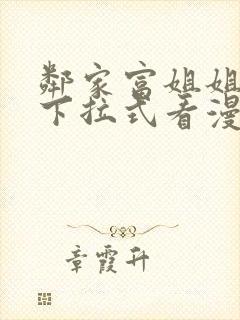 鄰家富姐姐
下拉式看漫
章霞升